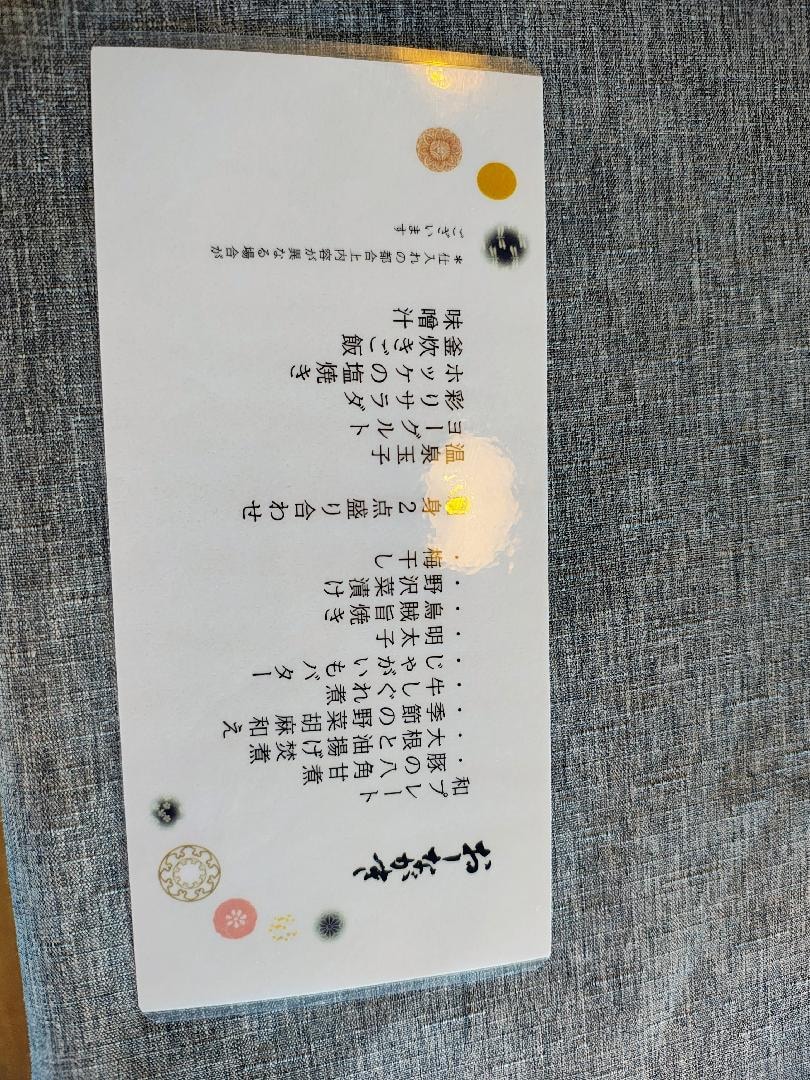 おしながき
和プレート
・豚の八角甘煮
・大根と油揚げ焚煮
・季節の野菜胡麻和え
・牛しぐれ煮
・じゃがいもバター
・明太子
・烏賊旨焼き
・野沢菜漬け
・梅干し
刺身2点盛り合わせ
温泉玉子
ヨーグルト
彩りサラダ
ホッケの塩焼き
釜炊きご飯
味噌汁
*仕入れの都合上内容が異なる場合が
ございます